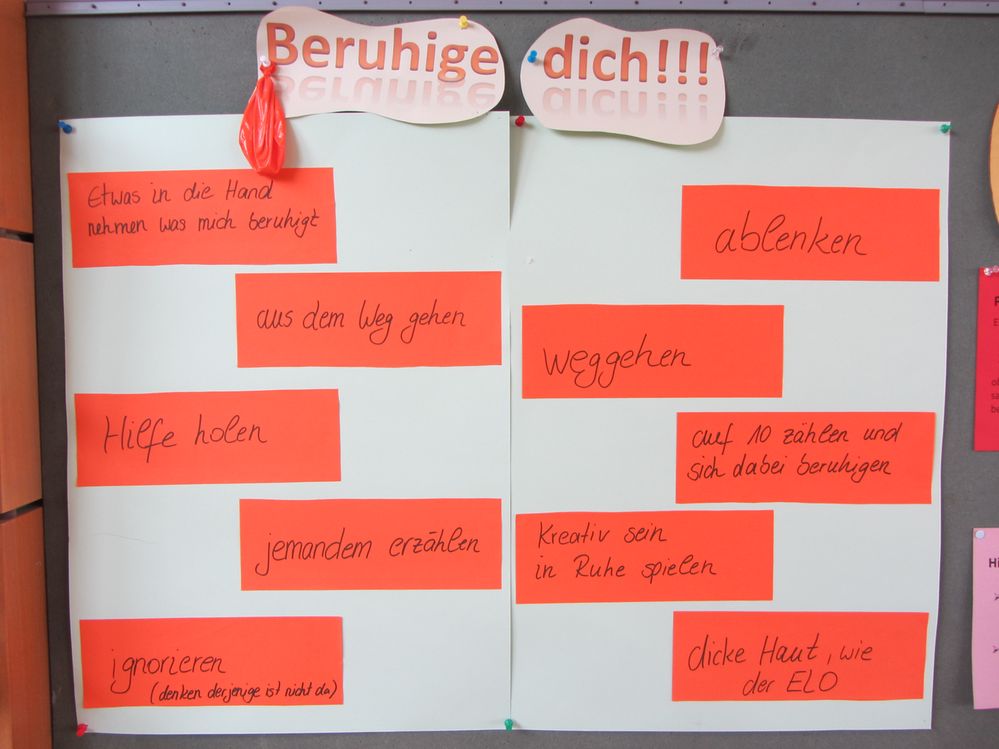 Beruhige dich!!!
Etwas in die Hand
nehmen was mich beruhigt
aus dem Weg gehen
Hilfe holen
jemandem erzählen
ignorieren
(denken derjenige ist nicht da)
ablenken
weggehen
auf 10 zählen und
sich dabei beruhigen
Kreativ sein
in Ruhe spielen
dicke Haut, wie
der ELO